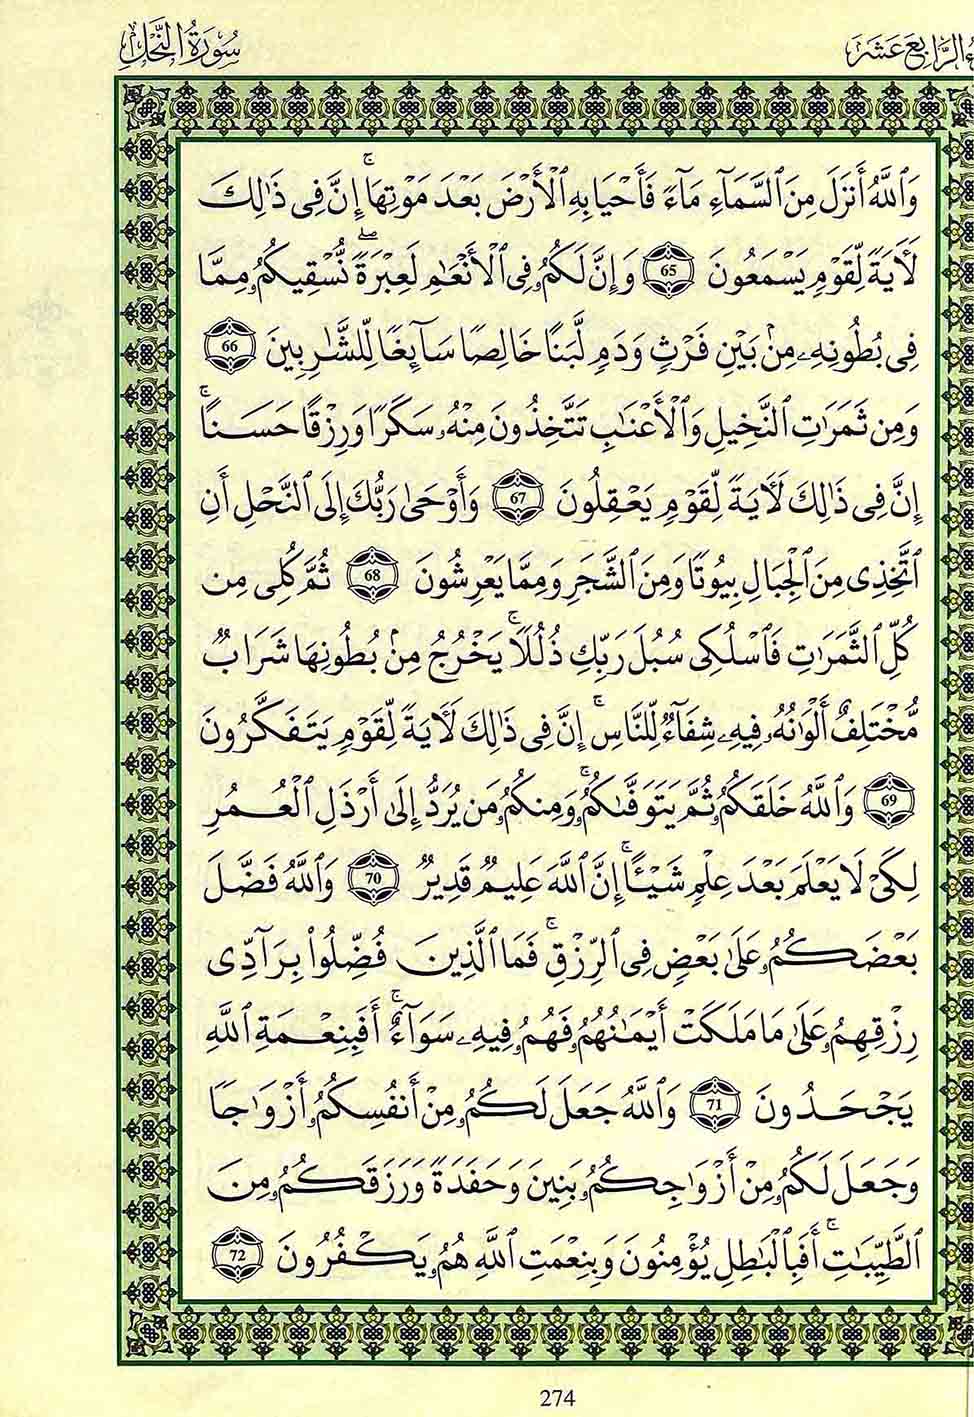 ءُ الرَّابِعَ عَشَرَ
سُورَةُ النَّحْلِ
وَٱللَّهُ أَنزَلَ مِنَ ٱلسَّمَآءِ مَآءً فَأَحْيَا بِهِ ٱلْأَرْضَ بَعْدَ مَوْتِهَآ ۚ إِنَّ فِى ذَٰلِكَ
لَـَٔايَةً لِّقَوْمٍ يَسْمَعُونَ 65 وَإِنَّ لَكُمُۥ فِى ٱلْأَنْعَـٰمِ لَعِبْرَةً ۖ نُّسْقِيكُمُۥ مِمَّا
فِى بُطُونِهِۦ مِنۢ بَيْنِ فَرْثٍ وَدَمٍ لَّبَنًا خَالِصًا سَآئِغًا لِّلشَّـٰرِبِينَ 66
وَمِن ثَمَرَٰتِ ٱلنَّخِيلِ وَٱلْأَعْنَـٰبِ تَتَّخِذُونَ مِنْهُۥ سَكَرًا وَرِزْقًا حَسَنًا ۚ
إِنَّ فِى ذَٰلِكَ لَـَٔايَةً لِّقَوْمٍ يَعْقِلُونَ 67 وَأَوْحَىٰ رَبُّكَ إِلَى ٱلنَّحْلِ أَنِ
ٱتَّخِذِى مِنَ ٱلْجِبَالِ بِيُوتًا وَمِنَ ٱلشَّجَرِ وَمِمَّا يَعْرِشُونَ 68 ثُمَّ كُلِى مِن
كُلِّ ٱلثَّمَرَٰتِ فَٱسْلُكِى سُبُلَ رَبِّكِ ذُلُلًا ۚ يَخْرُجُ مِنۢ بُطُونِهَا شَرَابٌ
مُّخْتَلِفٌ أَلْوَٰنُهُۥ فِيهِۦ شِفَآءٌ لِّلنَّاسِ ۚ إِنَّ فِى ذَٰلِكَ لَـَٔايَةً لِّقَوْمٍ يَتَفَكَّرُونَ
69 وَٱللَّهُ خَلَقَكُمُۥ ثُمَّ يَتَوَفَّىٰكُمُۥ ۚ وَمِنكُمُۥ مَن يُرَدُّ إِلَىٰ أَرْذَلِ ٱلْعُمُرِ
لِكَىْ لَا يَعْلَمَ بَعْدَ عِلْمٍ شَيْـًٔا ۚ إِنَّ ٱللَّهَ عَلِيمٌ قَدِيرٌ 70 وَٱللَّهُ فَضَّلَ
بَعْضَكُمُۥ عَلَىٰ بَعْضٍ فِى ٱلرِّزْقِ ۚ فَمَا ٱلَّذِينَ فُضِّلُوا۟ بِرَآدِّى
رِزْقِهِمُۥ عَلَىٰ مَا مَلَكَتْ أَيْمَـٰنُهُمُۥ فَهُمُۥ فِيهِۦ سَوَآءٌ ۚ أَفَبِنِعْمَةِ ٱللَّهِ
يَجْحَدُونَ 71 وَٱللَّهُ جَعَلَ لَكُمُۥ مِنْ أَنفُسِكُمُۥ أَزْوَٰجًا
وَجَعَلَ لَكُمُۥ مِنْ أَزْوَٰجِكُمُۥ بَنِينَ وَحَفَدَةً وَرَزَقَكُمُۥ مِنَ
ٱلطَّيِّبَـٰتِ ۚ أَفَبِٱلْبَـٰطِلِ يُؤْمِنُونَ وَبِنِعْمَتِ ٱللَّهِ هُمُۥ يَكْفُرُونَ 72
274